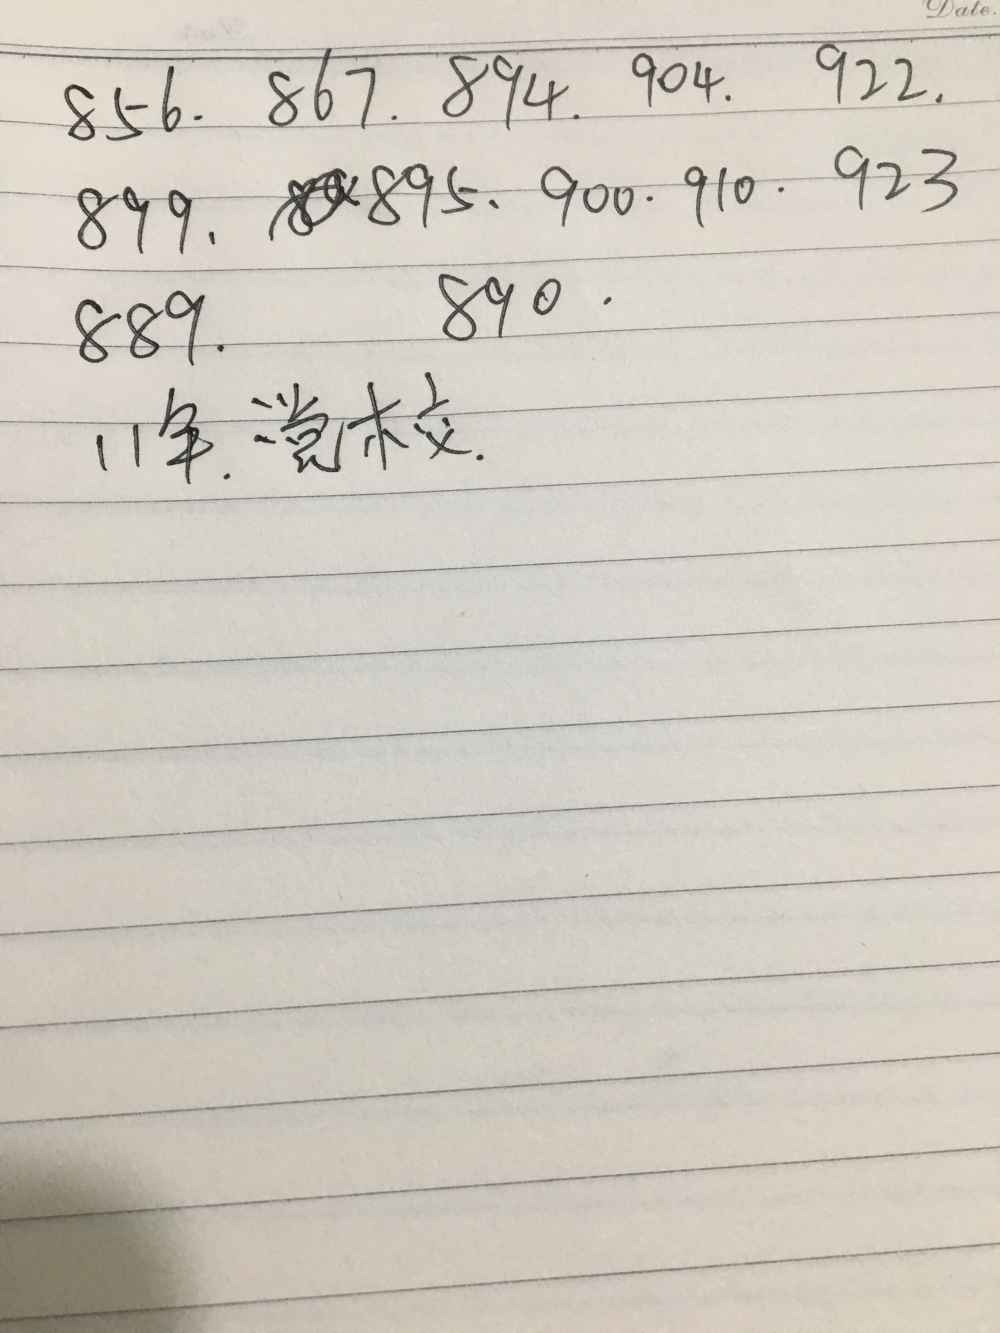 Date.
856. 867. 894. 904. 922.
899. 895. 900. 910. 923
889. 890.
11年. 党校.